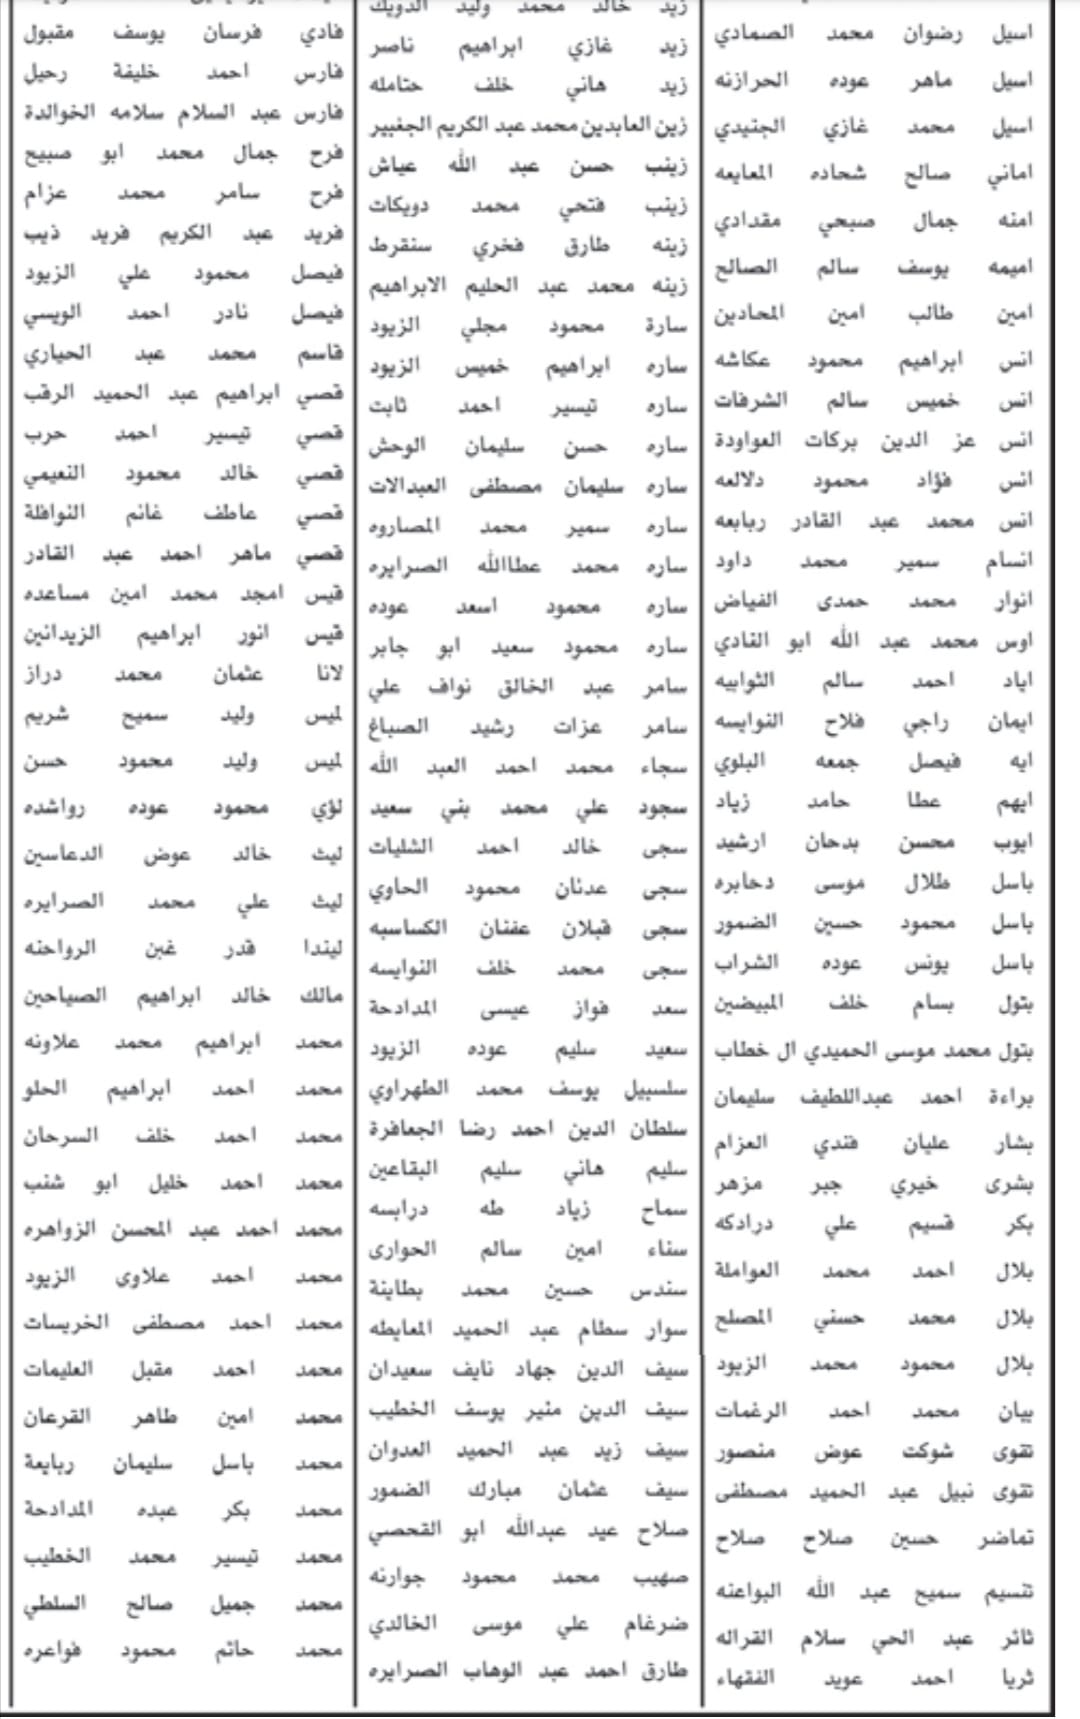 اسيل رضوان محمد الصمادي
اسيل ماهر عوده الحرازنه
اسيل محمد غازي الجنيدي
اماني صالح شحاده المعايعه
امنه جمال صبحي مقدادي
اميمه يوسف سالم الصالح
امين طالب امين المحادين
انس ابراهيم محمود عكاشه
انس خميس سالم الشرفات
انس عز الدين بركات العواودة
انس فؤاد محمود دلالعه
انس محمد عبد القادر ربابعه
انسام سمير محمد داود
انوار محمد حمدى الفياض
اوس محمد عبد الله ابو الفادي
اياد احمد سالم الثوابيه
ايمان راجي فلاح النوايسه
ايه فيصل جمعه البلوي
ايهم عطا حامد زياد
ايوب محسن بدحان ارشيد
باسل طلال موسى دحابره
باسل محمود حسين الضمور
باسل يونس عوده الشراب
بتول بسام خلف المبيضين
بتول محمد موسى الحميدي ال خطاب
براءة احمد عبداللطيف سليمان
بشار عليان فندي العزام
بشرى خيري جبر مزهر
بكر قسيم علي درادكه
بلال احمد محمد العواملة
بلال محمد حسني المصلح
بلال محمود محمد الزيود
بيان محمد احمد الرغمات
تقوى شوكت عوض منصور
تقوى نبيل عبد الحميد مصطفى
تماضر حسين صلاح صلاح
تنسيم سميح عبد الله البواعنه
ثائر عبد الحي سلام القراله
ثريا احمد عويد الفقهاء
زيد خالد محمد وليد الدويك
زيد غازي ابراهيم ناصر
زيد هاني خلف حتامله
زين العابدين محمد عبد الكريم الجغبير
زينب حسن عبد الله عياش
زينب فتحي محمد دويكات
زينه طارق فخري سنقرط
زينه محمد عبد الحليم الابراهيم
سارة محمود مجلي الزيود
ساره ابراهيم خميس الزيود
ساره تيسير احمد ثابت
ساره حسن سليمان الوحش
ساره سليمان مصطفى العبدالات
ساره سمير محمد المصاروه
ساره محمد عطاالله الصرايره
ساره محمود اسعد عوده
ساره محمود سعيد ابو جابر
سامر عبد الخالق نواف علي
سامر عزات رشيد الصباغ
سجاء محمد احمد العبد الله
سجود علي محمد بني سعيد
سجى خالد احمد الشليات
سجى عدنان محمود الحاوي
سجى قبلان عفنان الكساسبه
سجى محمد خلف النوايسه
سعد فواز عيسى المدادحة
سعيد سليم عوده الزيود
سلسبيل يوسف محمد الطهراوي
سلطان الدين احمد رضا الجعافرة
سليم هاني سليم البقاعين
سماح زياد طه درابسه
سناء امين سالم الحوارى
سندس حسين محمد بطاينة
سوار سطام عبد الحميد المعايطه
سيف الدين جهاد نايف سعيدان
سيف الدين منير يوسف الخطيب
سيف زيد عبد الحميد العدوان
سيف عثمان مبارك الضمور
صلاح عيد عبدالله ابو القحصي
صهيب محمد محمود جوارنه
ضرغام علي موسى الخالدي
طارق احمد عبد الوهاب الصرايره
فادي فرسان يوسف مقبول
فارس احمد خليفة رحيل
فارس عبد السلام سلامه الخوالدة
فرح جمال محمد ابو صبيح
فرح سامر محمد عزام
فريد عبد الكريم فريد ذيب
فيصل محمود علي الزيود
فيصل نادر احمد الويسي
قاسم محمد عبد الحياري
قصي ابراهيم عبد الحميد الرقب
قصي تيسير احمد حرب
قصي خالد محمود النعيمي
قصي عاطف غانم النوافلة
قصي ماهر احمد عبد القادر
قيس امجد محمد امين مساعده
قيس انور ابراهيم الزيدانين
لانا عثمان محمد دراز
لميس وليد سميح شريم
لميس وليد محمود حسن
لؤي محمود عوده رواشده
ليث خالد عوض الدعاسين
ليث علي محمد الصرايره
ليندا قدر غبن الرواحنه
مالك خالد ابراهيم الصياحين
محمد ابراهيم محمد علاونه
محمد احمد ابراهيم الحلو
محمد احمد خلف السرحان
محمد احمد خليل ابو شنب
محمد احمد عبد المحسن الزواهره
محمد احمد علاوى الزيود
محمد احمد مصطفى الخريسات
محمد احمد مقبل العليمات
محمد امين طاهر القرعان
محمد باسل سليمان ربايعة
محمد بكر عبده المدادحة
محمد تيسير محمد الخطيب
محمد جميل صالح السلطي
محمد حاتم محمود فواعره